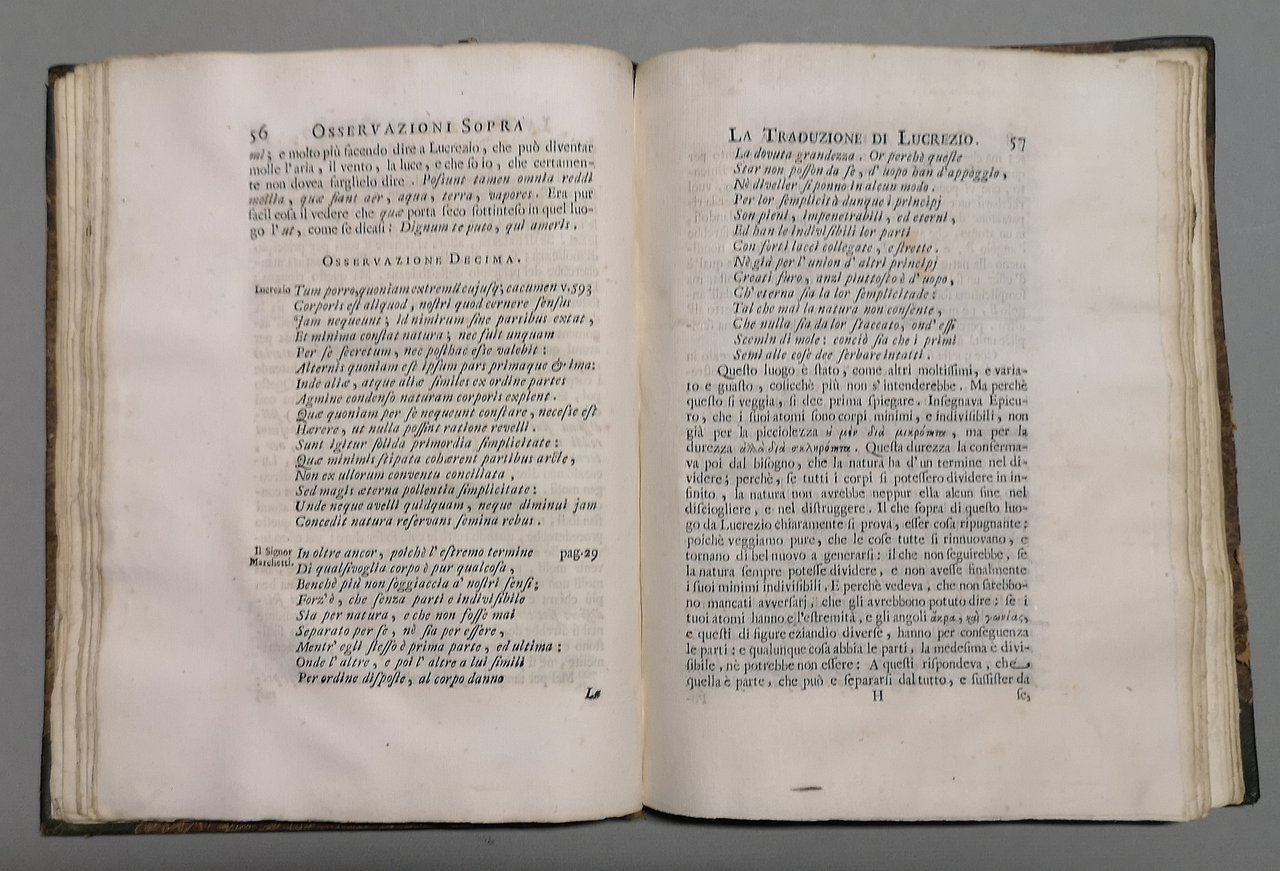 56 OSSERVAZIONI SOPRA
mi; e molto più facendo dire a Lucrezio, che può diventar
molle l'aria, il vento, la luce, e che so io, che certamen-
te non dovea farglielo dire. Possunt tamen omnia reddi
mollia, quæ fiant aer, aqua, terra, vapores. Era pur
facil cosa il vedere che quæ porta seco sottinteso in quel luo-
go l'ut, come se dicasi: Dignum te puto, qui ameris.
OSSERVAZIONE DECIMA.
Lucrezio Tum porro, quoniam extremũ cujusq; cacumen v.593
Corporis est aliquod, nostri quod cernere sensus
Jam nequeunt; id nimirum sine partibus extat,
Et minima constat natura; nec fuit unquam
Per se secretum, nec posthac esse valebit:
Alterius quoniam est ipsum pars primaque & ima:
Inde aliæ, atque aliæ similes ex ordine partes
Agmine condenso naturam corporis explent.
Quæ quoniam per se nequeunt constare, necesse est
Hærere, ut nulla possint ratione revelli.
Sunt igitur solida primordia simplicitate:
Quæ minimis stipata cohærent partibus arcte,
Non ex ullorum conventu conciliata,
Sed magis æterna pollentia simplicitate:
Unde neque avelli quidquam, neque diminui jam
Concedit natura reservans semina rebus.
Il Signor Marchetti. In oltre ancor, poichè l'estremo termine pag.29
Di qualsivoglia corpo è pur qualcosa,
Benchè più non soggiaccia a' nostri sensi;
Forz'è, che senza parti e indivisibile
Sia per natura, e che non fosse mai
Separato per se, nè sia per essere,
Mentr' egli stesso è prima parte, ed ultima:
Onde l'altre, e poi l'altre a lui simili
Per ordine disposte, al corpo danno
La
LA TRADUZIONE DI LUCREZIO. 57
La dovuta grandezza. Or perchè queste
Star non posson da se, d'uopo han d'appoggio,
Nè diveller si ponno in alcun modo.
Per lor semplicità dunque i principj
Son pieni, impenetrabili, ed eterni,
Ed han le indivisibili lor parti
Con forti lacci collegate, e strette.
Nè già per l'union d'altri principj
Creati furo, anzi piuttosto è d'uopo,
Ch'eterna sia la lor semplicitade:
Tal che mai la natura non consente,
Che nulla sia da lor staccato, ond' essi
Scemin di mole: conciò sia che i primi
Semi alle cose dee serbare intatti.
Questo luogo è stato, come altri moltissimi, e varia-
to e guasto, cosicchè più non s'intenderebbe. Ma perchè
questo si veggia, si dee prima spiegare. Insegnava Epicu-
ro, che i suoi atomi sono corpi minimi, e indivisibili, non
già per la picciolezza ὐ μὲν διὰ μικρότητα, ma per la
durezza ἀλλὰ διὰ σκληρότητα. Questa durezza la conferma-
va poi dal bisogno, che la natura ha d'un termine nel di-
videre; perchè, se tutti i corpi si potessero dividere in in-
finito, la natura non avrebbe neppur ella alcun fine nel
disciogliere, e nel distruggere. Il che sopra di questo luo-
go da Lucrezio chiaramente si prova, esser cosa ripugnante;
poichè veggiamo pure, che le cose tutte si rinnuovano, e
tornano di bel nuovo a generarsi: il che non seguirebbe, se
la natura sempre potesse dividere, e non avesse finalmente
i suoi minimi indivisibili. E perchè vedeva, che non sarebbo-
no mancati avversarj, che gli avrebbono potuto dire: se i
tuoi atomi hanno e l'estremità, e gli angoli ἄκρα, καὶ γωνίας,
e questi di figure eziandìo diverse, hanno per conseguenza
le parti: e qualunque cosa abbia le parti, la medesima è divi-
sibile, nè potrebbe non essere: A questi rispondeva, che
quella è parte, che può e separarsi dal tutto, e sussister da
H se,